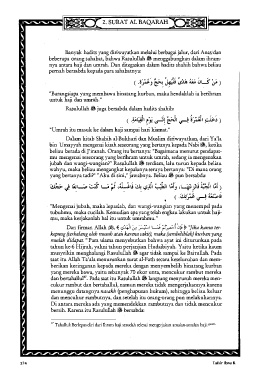 2. SURAT AL BAQARAH
Banyak hadits yang diriwayatkan melalui berbagai jalur, dari Anas dan
beberapa orang sahabat, bahwa Rasulullah ﷺ menggabungkan dalam ihram-
nya antara haji dan umrah. Dan ditegaskan dalam hadits shahih bahwa beliau
pernah bersabda kepada para sahabatnya:
( مَنْ كَانَ مَعَهُ هَدْيٌ فَلْيُهِلَّ بِحَجٍّ وَعُمْرَةٍ. )
"Barangsiapa yang membawa binatang kurban, maka hendaklah ia berihram
untuk haji dan umrah."
Rasulullah ﷺ juga bersabda dalam hadits shahih:
( دَخَلَتِ الْعُمْرَةُ فِي الْحَجِّ إِلَى يَوْمِ الْقِيَامَةِ. )
"Umrah itu masuk ke dalam haji sampai hari kiamat."
Dalam kitab Shahih al-Bukhari dan Muslim diriwayatkan, dari Ya'la
bin Umayyah mengenai kisah seorang yang bertanya kepada Nabi ﷺ, ketika
beliau berada di Ji'ranah. Orang itu bertanya: "Bagaimana menurut pendapat-
mu mengenai seseorang yang berihram untuk umrah, sedang ia mengenakan
jubah dan wangi-wangian?" Rasulullah ﷺ terdiam, lalu turun kepada beliau
wahyu, maka beliau mengangkat kepalanya seraya bertanya: "Di mana orang
yang bertanya tadi?" "Aku di sini," jawabnya. Beliau ﷺ pun bersabda:
"Mengenai jubah, maka lepaslah, dan wangi-wangian yang menempel pada
tubuhmu, maka cucilah. Kemudian apa yang telah engkau lakukan untuk haji-
mu, maka kerjakanlah hal itu untuk umrahmu."
Dan firman Allah "Jika kamu ter-
kepung (terhalang oleh musuh atau karena sakit), maka (sembelihlah) kurban yang
mudah didapat." Para ulama menyebutkan bahwa ayat ini diturunkan pada
tahun ke-6 Hijrah, yakni tahun perjanjian Hudaibiyah. Yaitu ketika kaum
musyrikin menghalangi Rasulullah ﷺ agar tidak sampai ke Baitullah. Pada
saat itu Allah Ta'ala menurunkan surat al-Fath secara keseluruhan dan mem-
berikan keringanan kepada mereka dengan menyembelih binatang kurban
yang mereka bawa, yaitu sebanyak 70 ekor unta, mencukur rambut mereka
dan bertahallul. Pada saat itu Rasulullah ﷺ langsung menyuruh mereka men-
cukur rambut dan bertahallul, namun mereka tidak mengerjakannya karena
menunggu datangnya nasakh (penghapusan hukum), sehingga beliau keluar
dan mencukur rambutnya, dan setelah itu orang-orang pun melakukannya.
Di antara mereka ada yang memendekkan rambutnya dan tidak mencukur
bersih. Karena itu Rasulullah ﷺ bersabda:
274
Tafsir Ibnu K